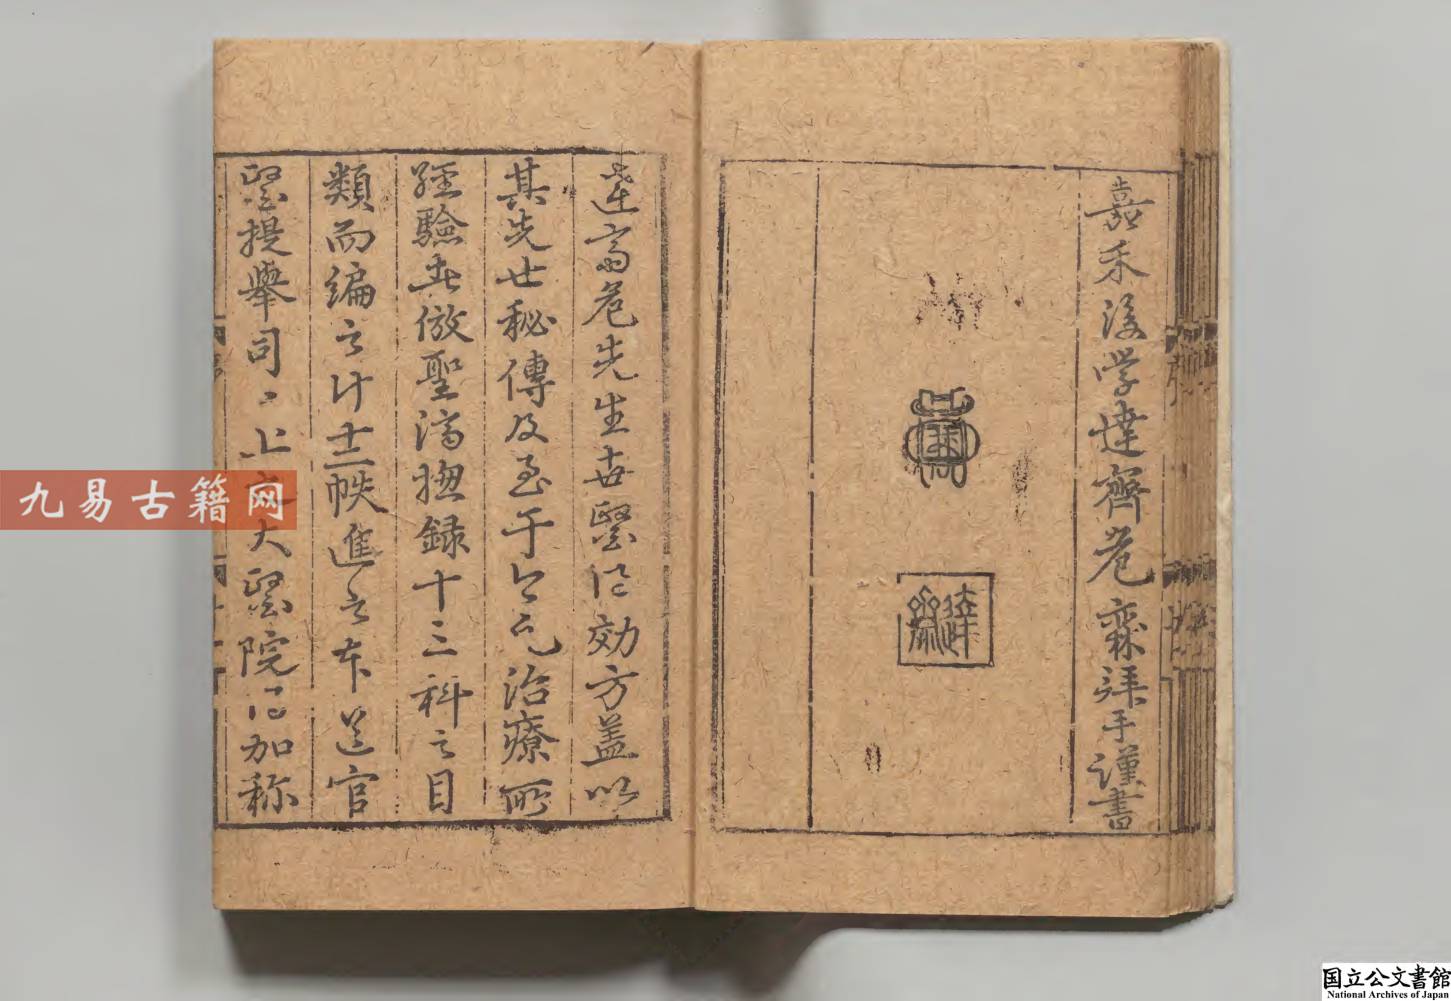 嘉禾後学達齋危亦林拜手謹書
達齋
達齋危先生世醫得効方蓋以
其先世秘傳及至于今凡治療所
經驗者倣聖濟揔録十三科之目
類而編之計十二帙進之本道官
醫提舉司〻上之大醫院已加称
九易古籍网
国立公文書館
National Archives of Japan